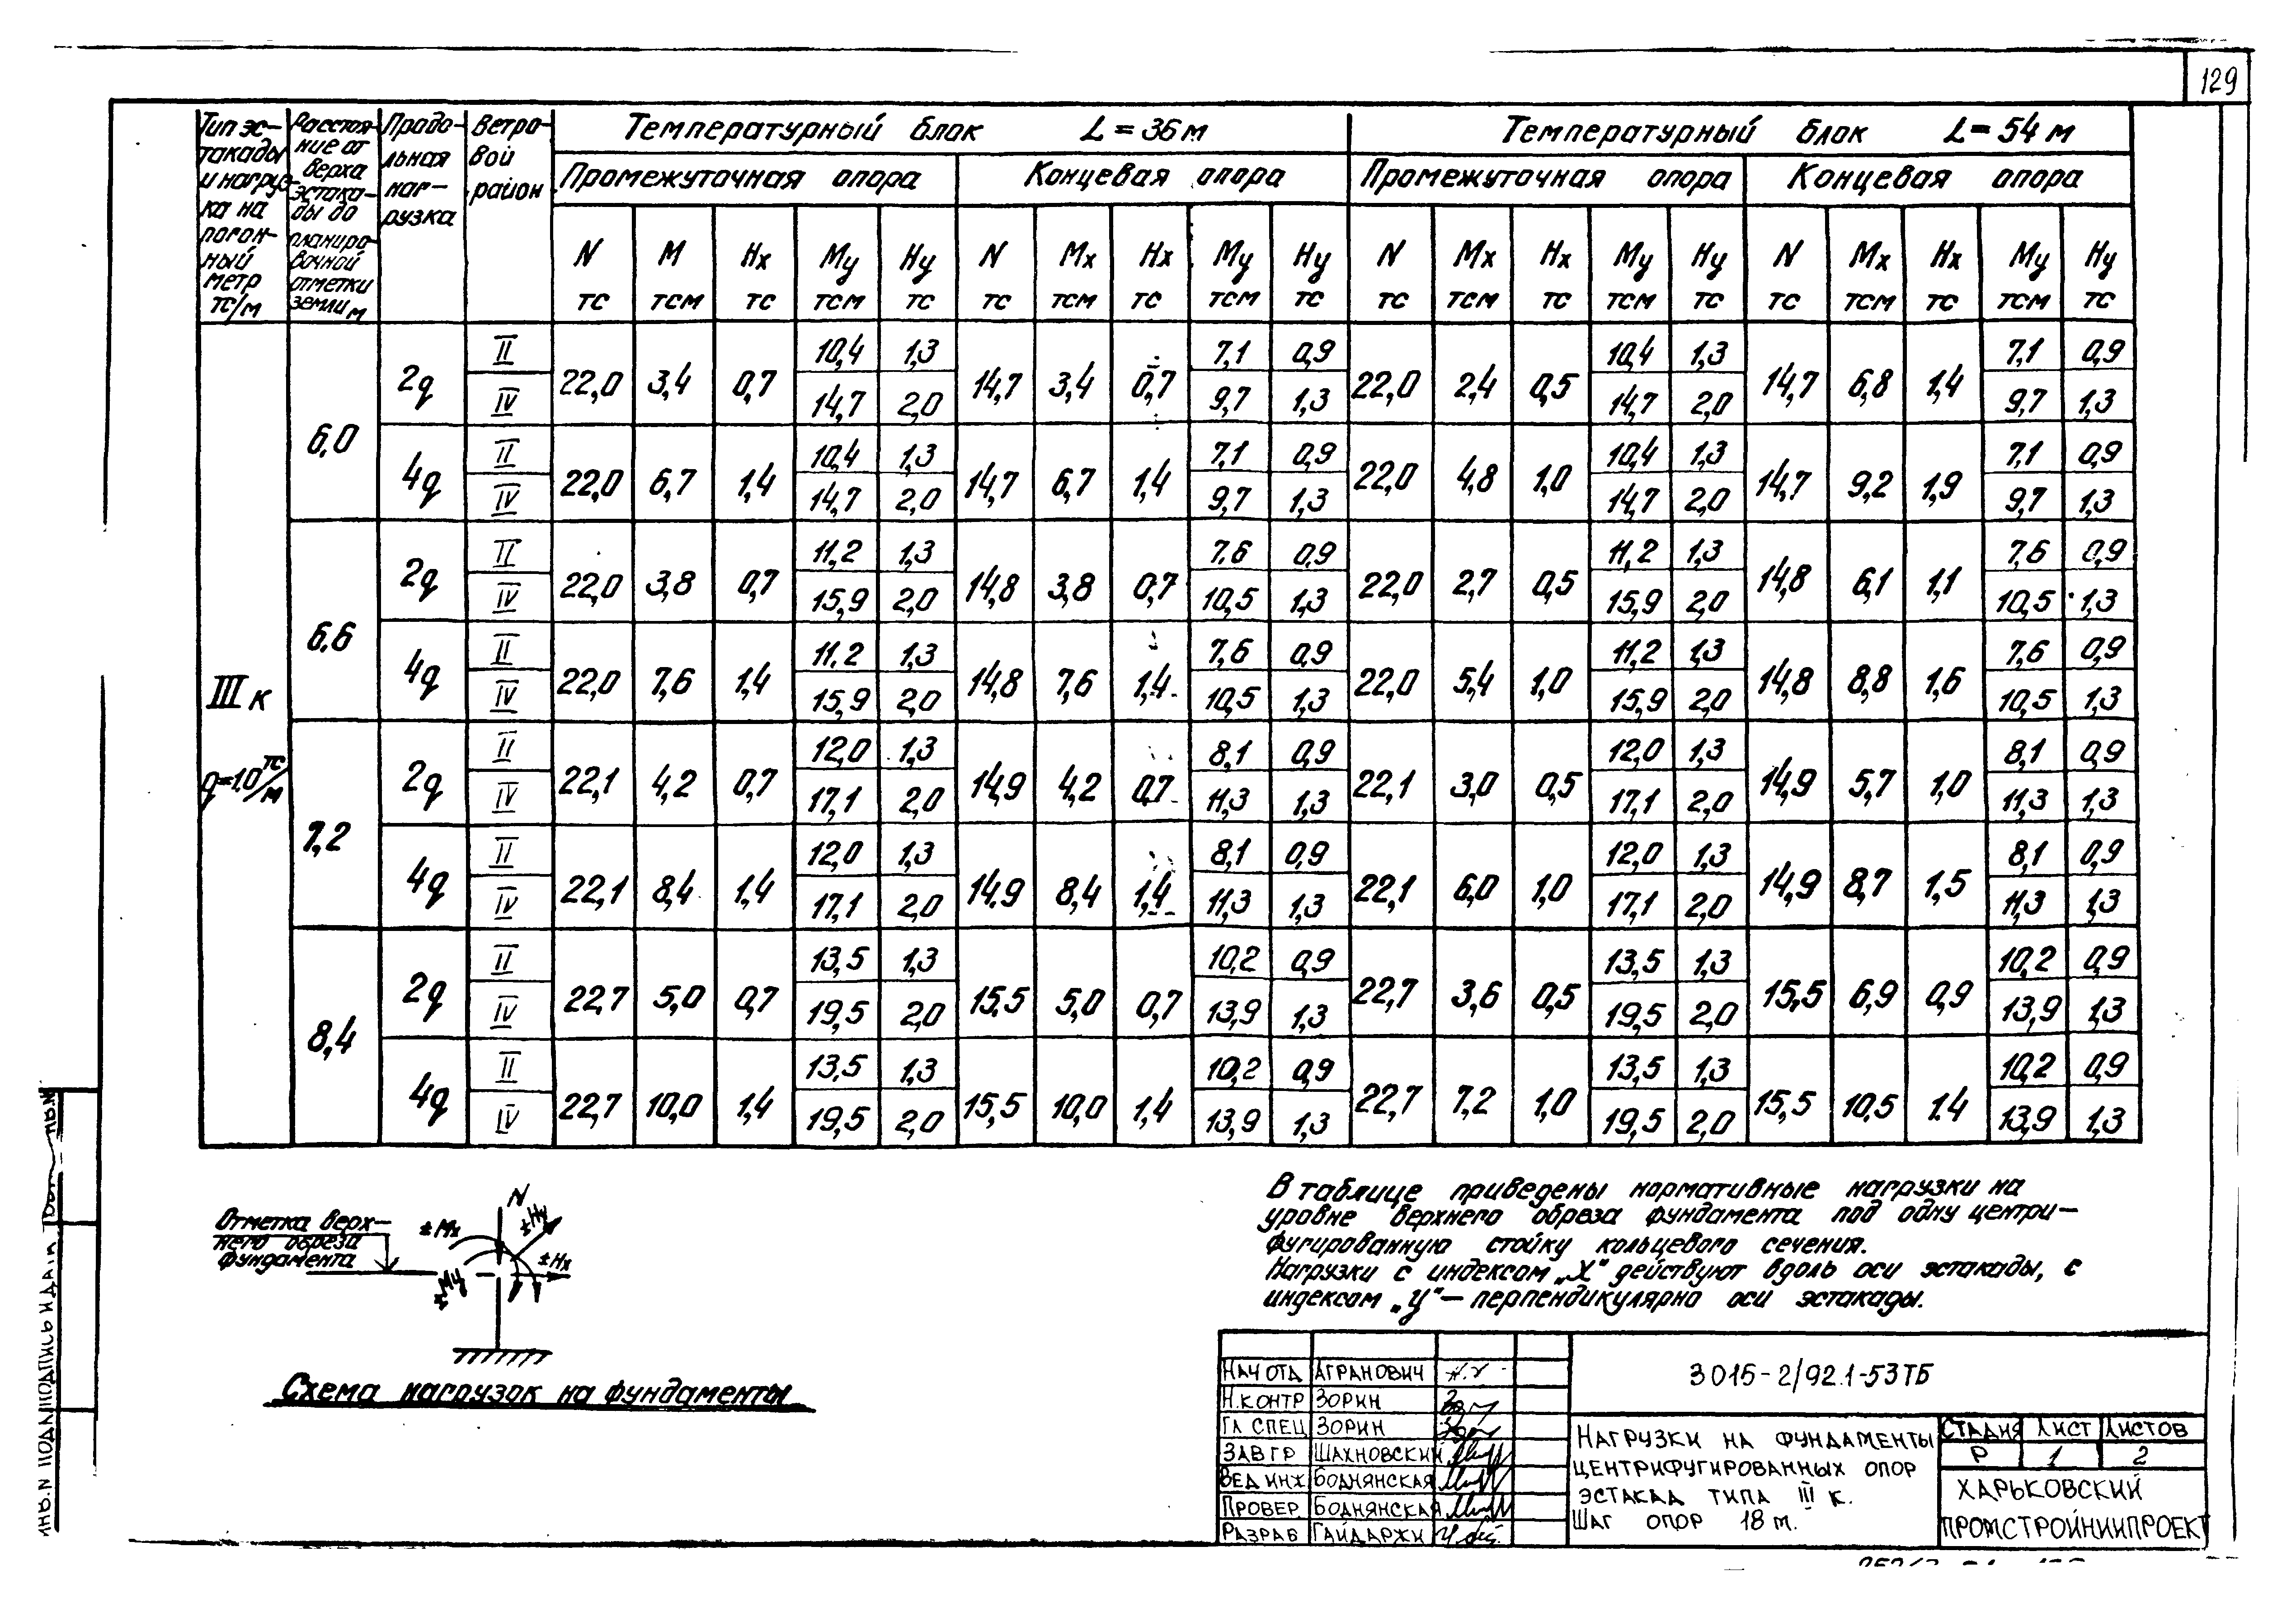 129
Тип эс-
такады
и нагруз-
ка на
погон-
ный
метр
тс/м
Расстоя-
ние от
верха
эстака-
ды до
планиро-
вочной
отметки
земли м
Продо-
льная
наг-
рузка
Ветро-
вой
район
Температурный блок L = 36 м
Температурный блок L = 54 м
Промежуточная опора
Концевая опора
Промежуточная опора
Концевая опора
N M Hx My Hy N Mx Hx My Hy N Mx Hx My Hy N Mx Hx My Hy
тс тсм тс тсм тс тс тсм тс тсм тс тс тсм тс тсм тс тс тсм тс тсм тс
III к
q=1,0 тс/м
6,0
2q
II 10,4 1,3 7,1 0,9 10,4 1,3 7,1 0,9
22,0 3,4 0,7 14,7 3,4 0,7 22,0 2,4 0,5 14,7 6,8 1,4
IV 14,7 2,0 9,7 1,3 14,7 2,0 9,7 1,3
4q
II 10,4 1,3 7,1 0,9 10,4 1,3 7,1 0,9
22,0 6,7 1,4 14,7 6,7 1,4 22,0 4,8 1,0 14,7 9,2 1,9
IV 14,7 2,0 9,7 1,3 14,7 2,0 9,7 1,3
6,6
2q
II 11,2 1,3 7,6 0,9 11,2 1,3 7,6 0,9
22,0 3,8 0,7 14,8 3,8 0,7 22,0 2,7 0,5 14,8 6,1 1,1
IV 15,9 2,0 10,5 1,3 15,9 2,0 10,5 1,3
4q
II 11,2 1,3 7,6 0,9 11,2 1,3 7,6 0,9
22,0 7,6 1,4 14,8 7,6 1,4 22,0 5,4 1,0 14,8 8,8 1,6
IV 15,9 2,0 10,5 1,3 15,9 2,0 10,5 1,3
7,2
2q
II 12,0 1,3 8,1 0,9 12,0 1,3 8,1 0,9
22,1 4,2 0,7 14,9 4,2 0,7 22,1 3,0 0,5 14,9 5,7 1,0
IV 17,1 2,0 11,3 1,3 17,1 2,0 11,3 1,3
4q
II 12,0 1,3 8,1 0,9 12,0 1,3 8,1 0,9
22,1 8,4 1,4 14,9 8,4 1,4 22,1 6,0 1,0 14,9 8,7 1,5
IV 17,1 2,0 11,3 1,3 17,1 2,0 11,3 1,3
8,4
2q
II 13,5 1,3 10,2 0,9 13,5 1,3 10,2 0,9
22,7 5,0 0,7 15,5 5,0 0,7 22,7 3,6 0,5 15,5 6,9 0,9
IV 19,5 2,0 13,9 1,3 19,5 2,0 13,9 1,3
4q
II 13,5 1,3 10,2 0,9 13,5 1,3 10,2 0,9
22,7 10,0 1,4 15,5 10,0 1,4 22,7 7,2 1,0 15,5 10,5 1.4
IV 19,5 2,0 13,9 1,3 19,5 2,0 13,9 1,3
Отметка верх-
него обреза
фундамента
N
±Hy
±Mx
±Hx
±My
Схема нагрузок на фундаменты
В таблице приведены нормативные нагрузки на
уровне верхнего обреза фундамента под одну центри-
фугированную стойку кольцевого сечения.
Нагрузки с индексом „X" действуют вдоль оси эстакады, с
индексом „У"— перпендикулярно оси эстакады.
Нач отд Агранович
Н.контр Зорин
Гл спец Зорин
Зав гр Шахновский
Вед инж Боднянская
Провер Боднянская
Разраб Гайдаржи
3 015-2/92.1-53ТБ
Нагрузки на фундаменты
центрифугированных опор
эстакад типа III к.
Шаг опор 18 м.
Стадия Лист Листов
Р 1 2
Харьковский
Промстройниипроект
Инв.N подл Подпись и дата